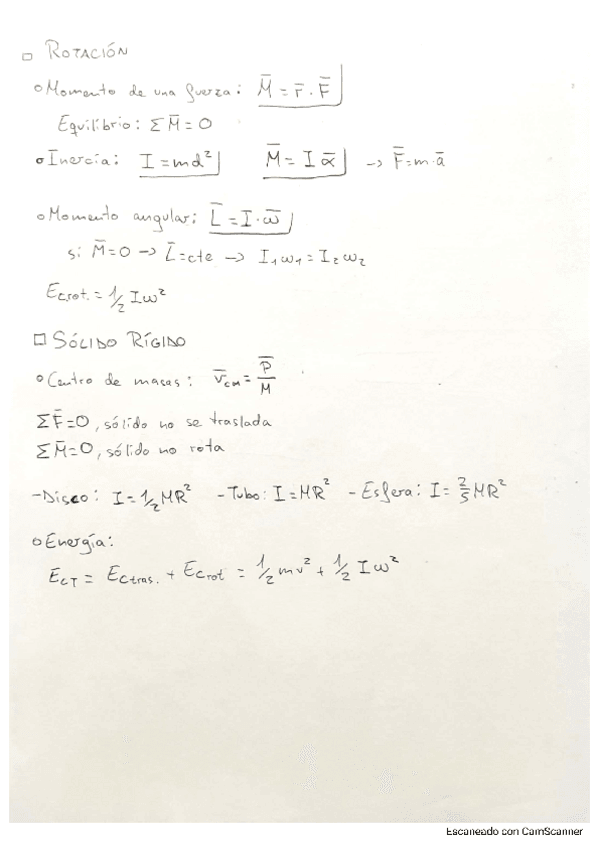 □ ROTACIÓN
o Momento de una fuerza: M̄ = r̄ · F̄
Equilibrio: Σ M̄ = 0
o Inercia: I = md² M̄ = I ᾱ → F̄ = m·ā
o Momento angular: L̄ = I · ω̄
si M̄ = 0 → L̄ = cte → I₁ω₁ = I₂ω₂
Ecrot. = 1/2 Iω²
□ SÓLIDO RÍGIDO
o Centro de masas: v̄cm = P̄/M
ΣF̄ = 0, sólido no se traslada
ΣM̄ = 0, sólido no rota
- Disco: I = 1/2 MR² - Tubo: I = MR² - Esfera: I = 2/5 MR²
o Energía:
EcT = Ectras. + Ecrot = 1/2 mv² + 1/2 Iω²
Escaneado con CamScanner